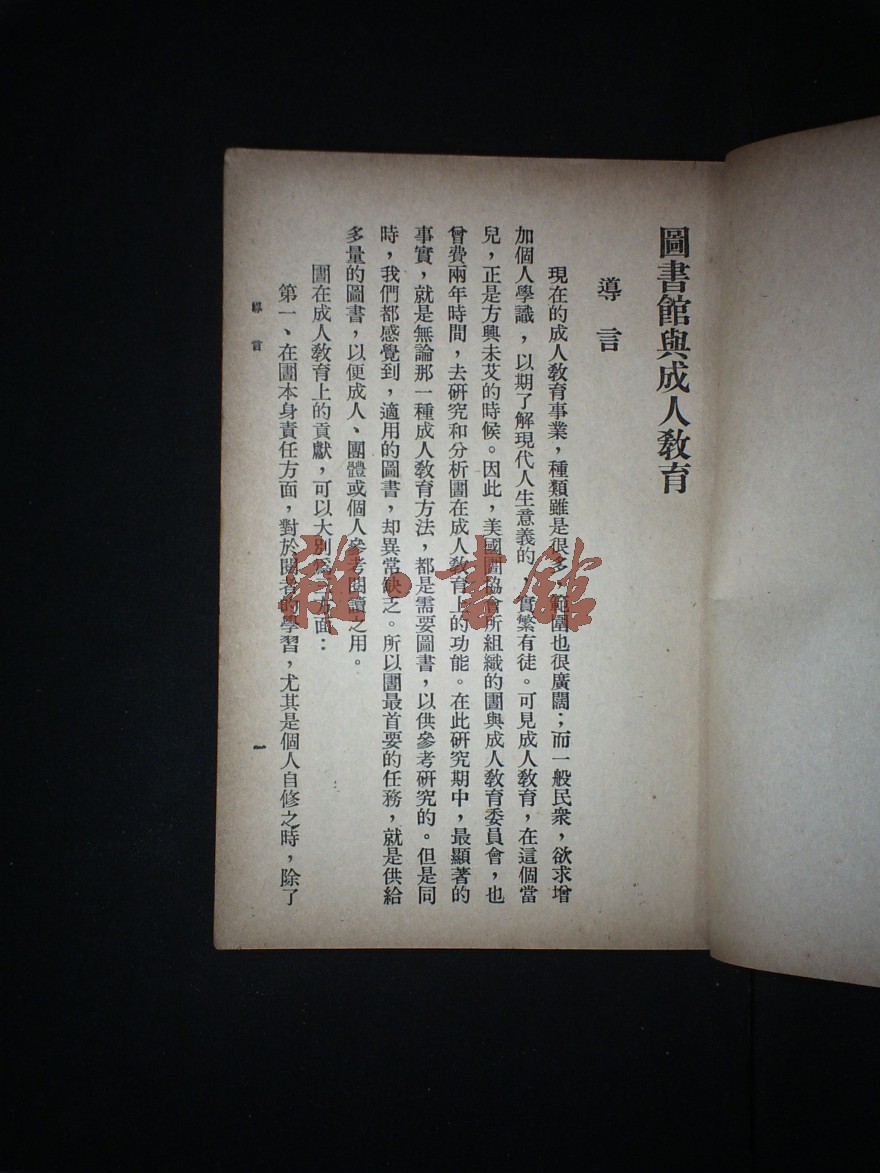 圖書館與成人教育
導言
現在的成人教育事業，種類雖是很多，範圍也很廣闊；而一般民衆，欲求增
加個人學識，以期了解現代人生意義的，實繁有徒。可見成人教育，在這個當
兒，正是方興未艾的時候。因此，美國圕協會所組織的圕與成人教育委員會，也
曾費兩年時間，去研究和分析圕在成人教育上的功能。在此研究期中，最顯著的
事實，就是無論那一種成人教育方法，都是需要圖書，以供參考研究的。但是同
時，我們都感覺到，適用的圖書，却異常缺乏。所以圕最首要的任務，就是供給
多量的圖書，以便成人、團體或個人參考閱讀之用。
圕在成人教育上的貢獻，可以大別爲方面：
第一、在圕本身責任方面，對於閱者的學習，尤其是個人自修之時，除了
導言
一
雜·書館